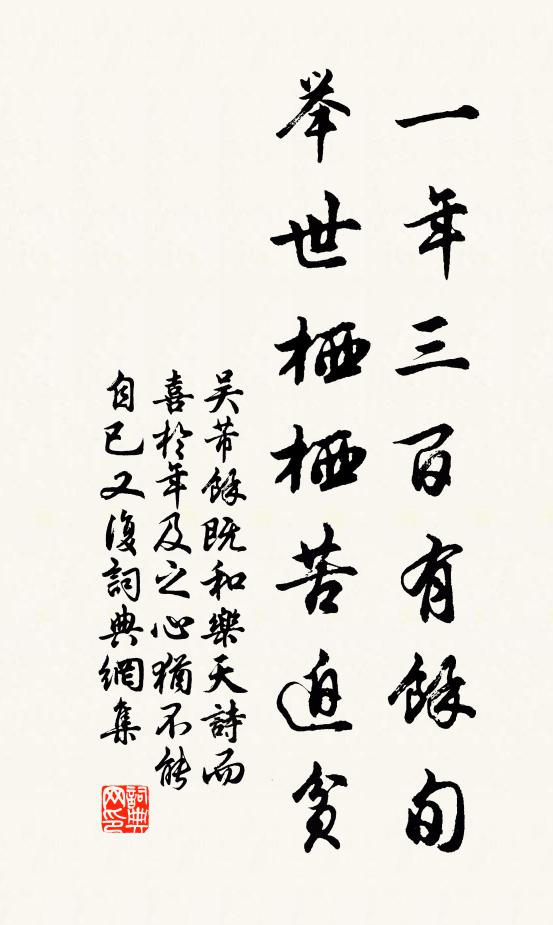 一年三百有餘旬
举世栖栖苦迫貧
吴芾餘既和樂天詩而
喜於年及之心猶不能
自已又復詞典網集
詞典网印